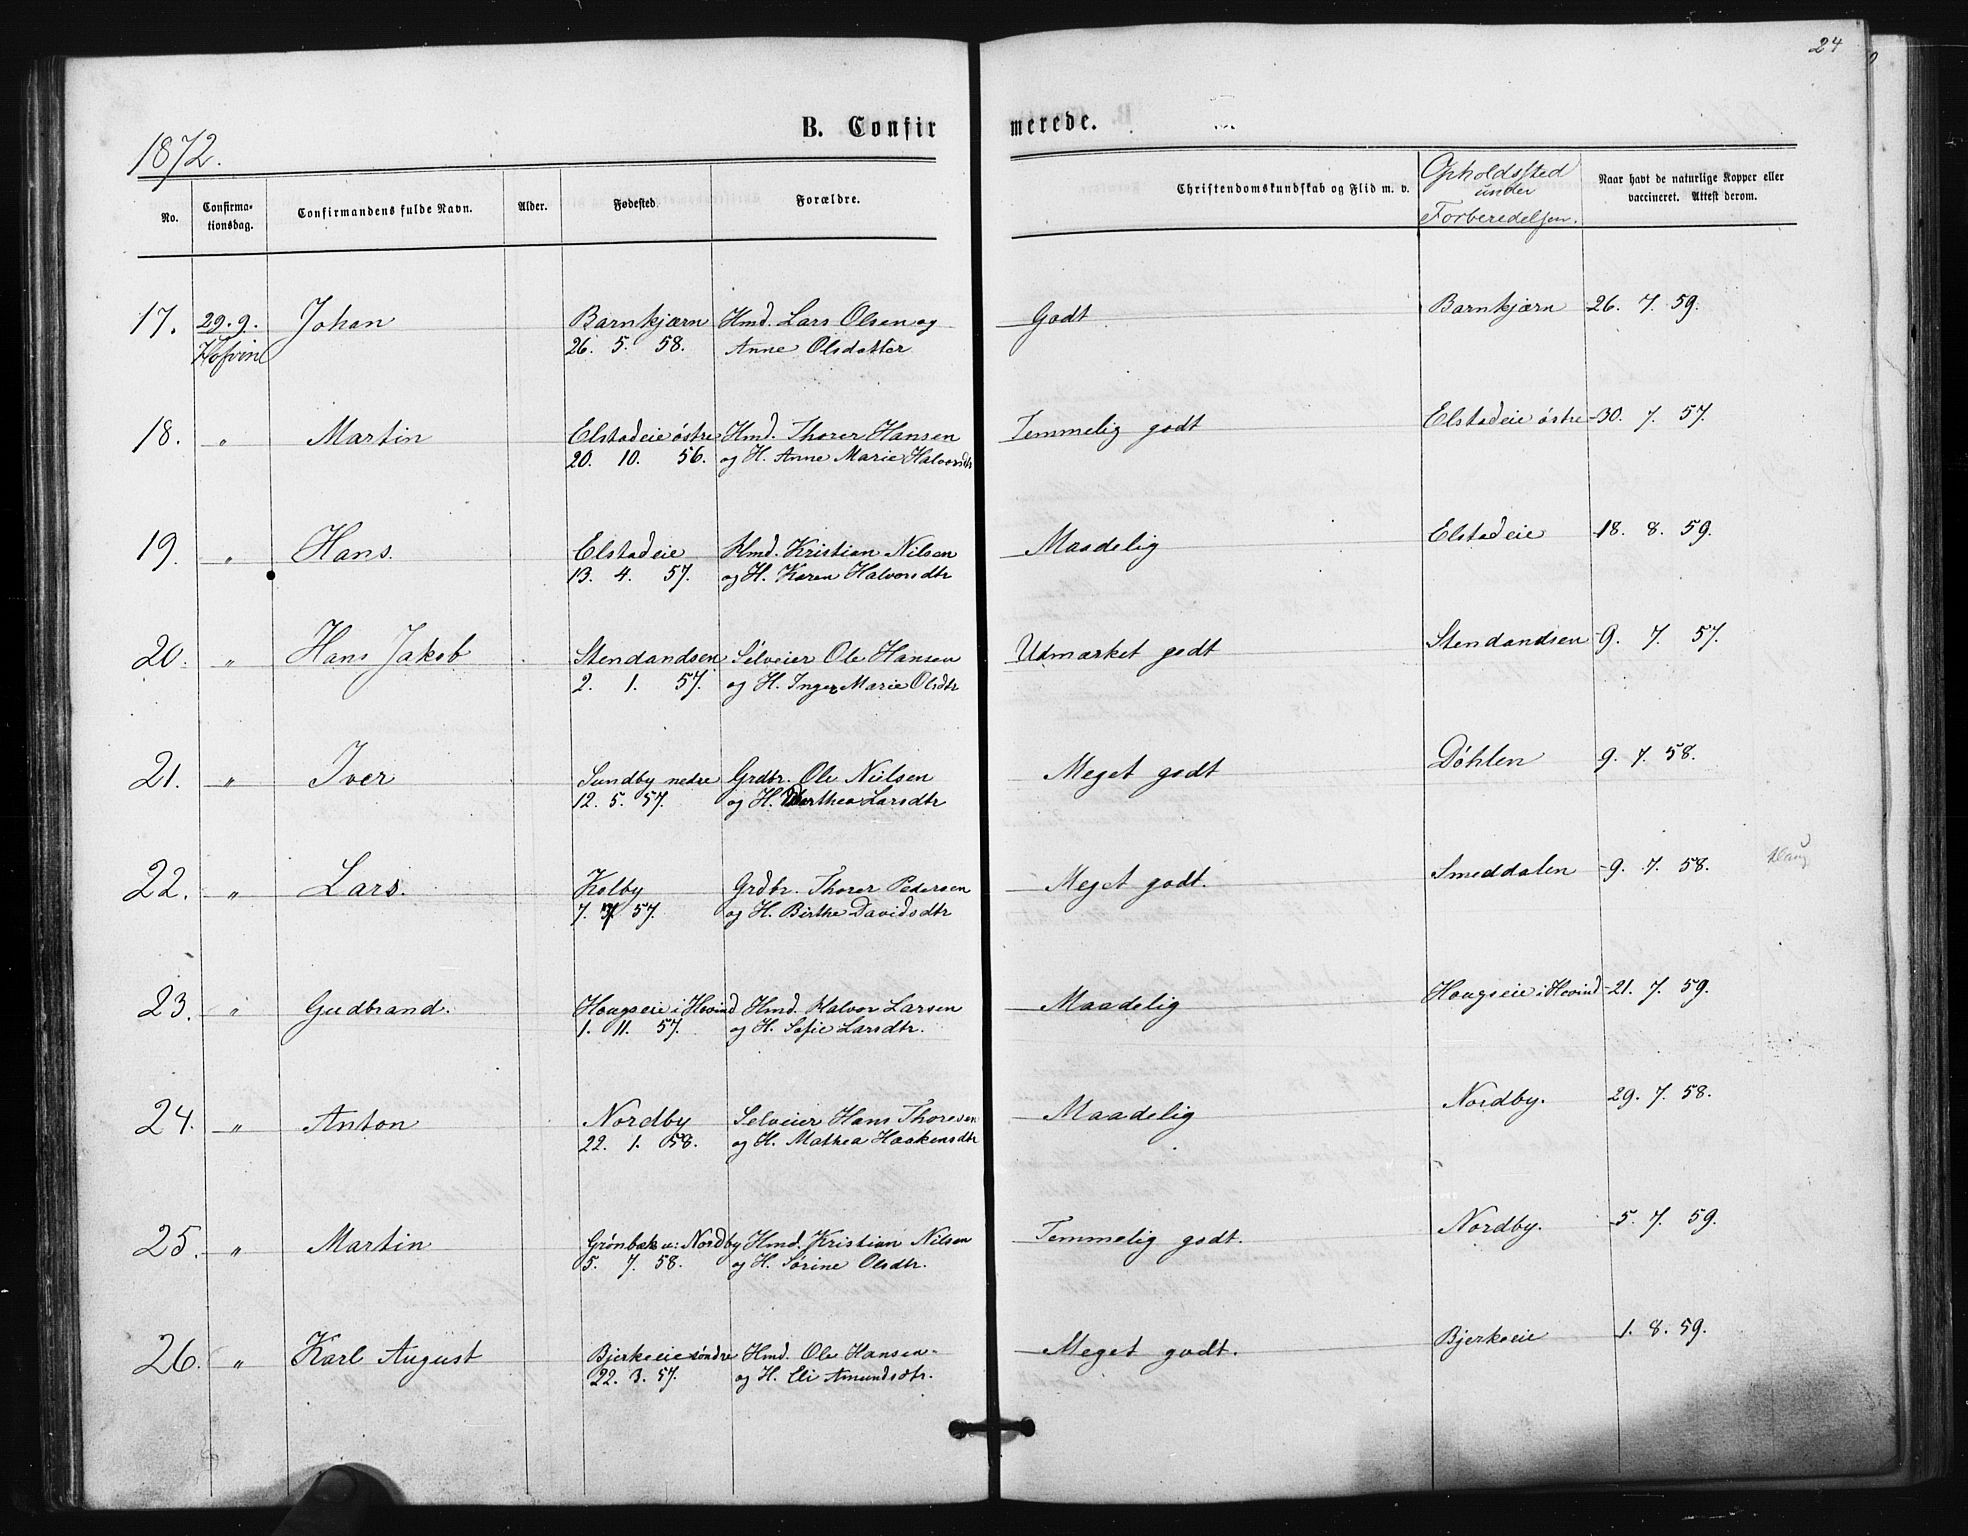 24
1872.
B. Confirmerede.
No. Confirmationsdag. Confirmandens fulde Navn. Alder. Fødested. Forældre. Christendomskundskab og Flid m. v. Opholdssted under Forberedelsen. Naar havt de naturlige Kopper eller vaccineret. Attest derom.
17. 29. 9. Johan Barnkjærn Hmd. Lars Olsen og Godt Barnkjærn 26. 7. 59.
Hofvin 26. 5. 58. Anne Olsdatter
18. " Martin Elstadeie østre Hmd. Thorer Hansen Temmelig godt Elstadeie østre 30. 7. 57.
20. 10. 56. og H. Anne Marie Halvorsdtr
19. " Hans. Elstadeie Hmd. Kristian Nilsen Maadelig Elstadeie 18. 8. 59.
13. 4. 57. og H. Karen Halvorsdtr
20. " Hans Jakob Stendandsen Selveier Ole Hansen Udmærket godt Stendandsen 9. 7. 57.
2. 1. 57. og H. Inger Marie Olsdtr
21. " Iver Sundby nedre Grdbr. Ole Nielsen Meget godt Döhlen 9. 7. 58.
12. 5. 57. og H. Larsdtr
22. " Lars. Kolby Grdbr. Thorer Pedersen Meget godt. Smeddalen 9. 7. 58. Haug
7. 57. og H. Birthe Davidsdtr
23. " Gudbrand. Hougseie i Hovind Hmd. Halvor Larsen Maadelig Hougseie i Hovind 21. 7. 59.
1. 11. 57. og H. Sofie Larsdtr.
24. " Anton Nordby Selveier Hans Thoresen Maadelig Nordby. 29. 7. 58.
22. 1. 58. og H. Mathea Haakensdtr
25. " Martin Grönbæk u: Nordby Hmd. Kristian Nilsen Temmelig godt. Nordby. 5. 7. 59.
5. 7. 58. og H. Sörine Olsdtr.
26. " Karl August Bjerkeeie söndre Hmd. Ole Hansen Meget godt. Bjerkeeie 1. 8. 59.
22. 3. 57. og H. Eli Amundsdtr.